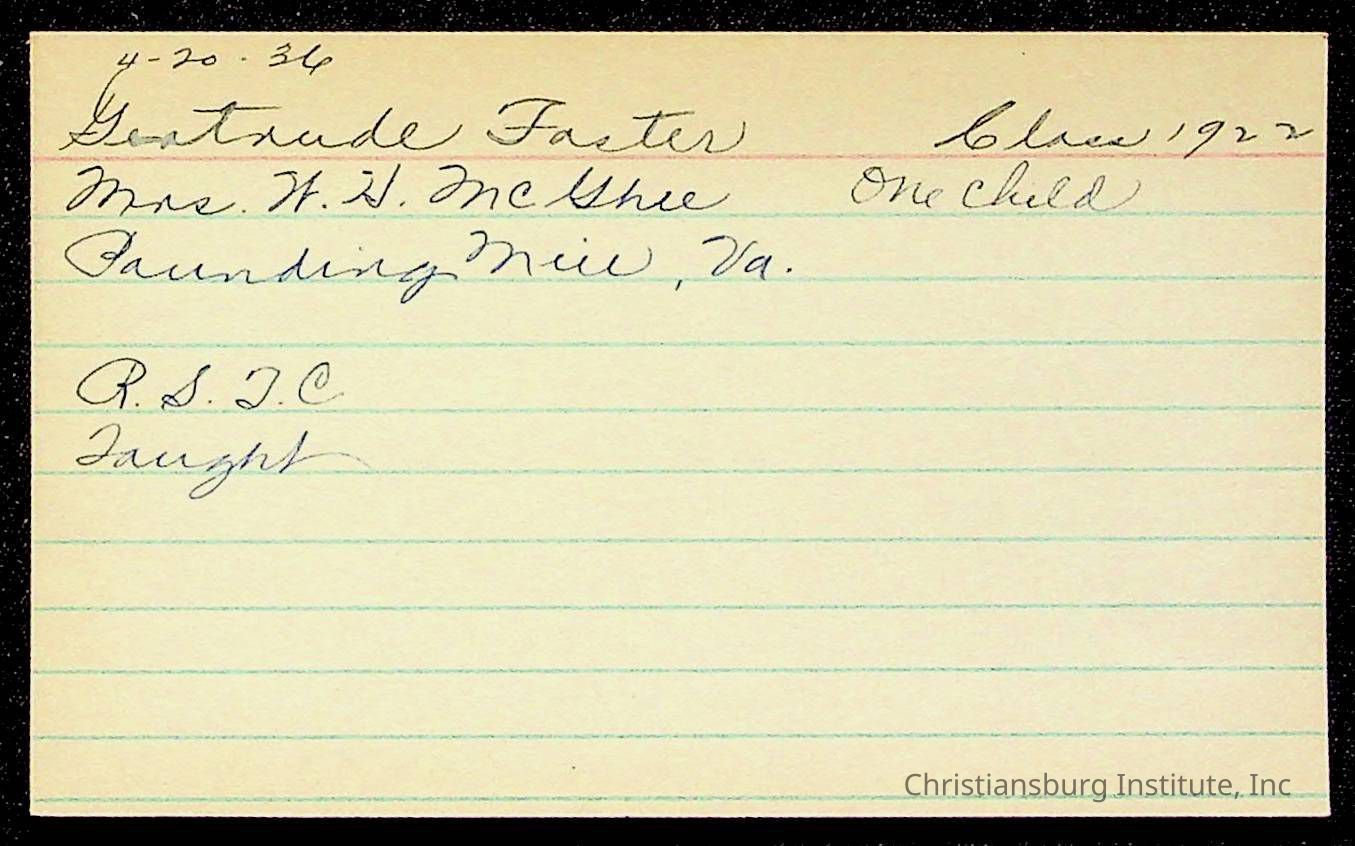 4-20-36
Gertrude Foster Class 1922
Mrs. W. H. McGhee One child
Pounding Mill, Va.
R. S. T. C
Taught
Christiansburg Institute, Inc